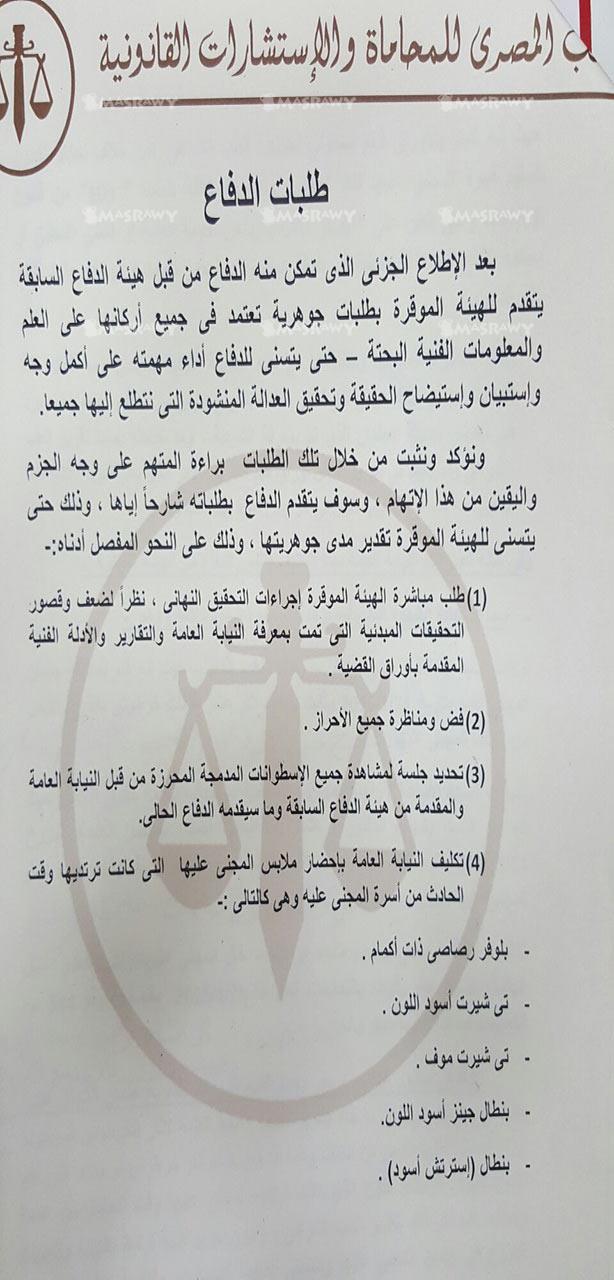 المصرى للمحاماة والإستشارات القانونية
MASRAWY MASRAWY MASRAWY
طلبات الدفاع
MASRAWY MASRAWY MASRAWY
بعد الإطلاع الجزئى الذى تمكن منه الدفاع من قبل هيئة الدفاع السابقة
يتقدم للهيئة الموقرة بطلبات جوهرية تعتمد فى جميع أركانها على العلم
والمعلومات الفنية البحتة – حتى يتسنى للدفاع أداء مهمته على أكمل وجه
وإستبيان وإستيضاح الحقيقة وتحقيق العدالة المنشودة التى نتطلع إليها جميعا.
ونؤكد ونثبت من خلال تلك الطلبات براءة المتهم على وجه الجزم
واليقين من هذا الإتهام ، وسوف يتقدم الدفاع بطلباته شارحاً إياها ، وذلك حتى
يتسنى للهيئة الموقرة تقدير مدى جوهريتها ، وذلك على النحو المفصل أدناه:-
(1) طلب مباشرة الهيئة الموقرة إجراءات التحقيق النهائى ، نظراً لضعف وقصور
التحقيقات المبدئية التى تمت بمعرفة النيابة العامة والتقارير والأدلة الفنية
المقدمة بأوراق القضية .
(2) فض ومناظرة جميع الأحراز .
(3) تحديد جلسة لمشاهدة جميع الإسطوانات المدمجة المحرزة من قبل النيابة العامة
والمقدمة من هيئة الدفاع السابقة وما سيقدمه الدفاع الحالى.
(4) تكليف النيابة العامة بإحضار ملابس المجنى عليها التى كانت ترتديها وقت
الحادث من أسرة المجنى عليه وهى كالتالى :-
- بلوفر رصاصى ذات أكمام .
- تى شيرت أسود اللون .
- تى شيرت موف .
- بنطال جينز أسود اللون.
- بنطال (إسترتش أسود) .